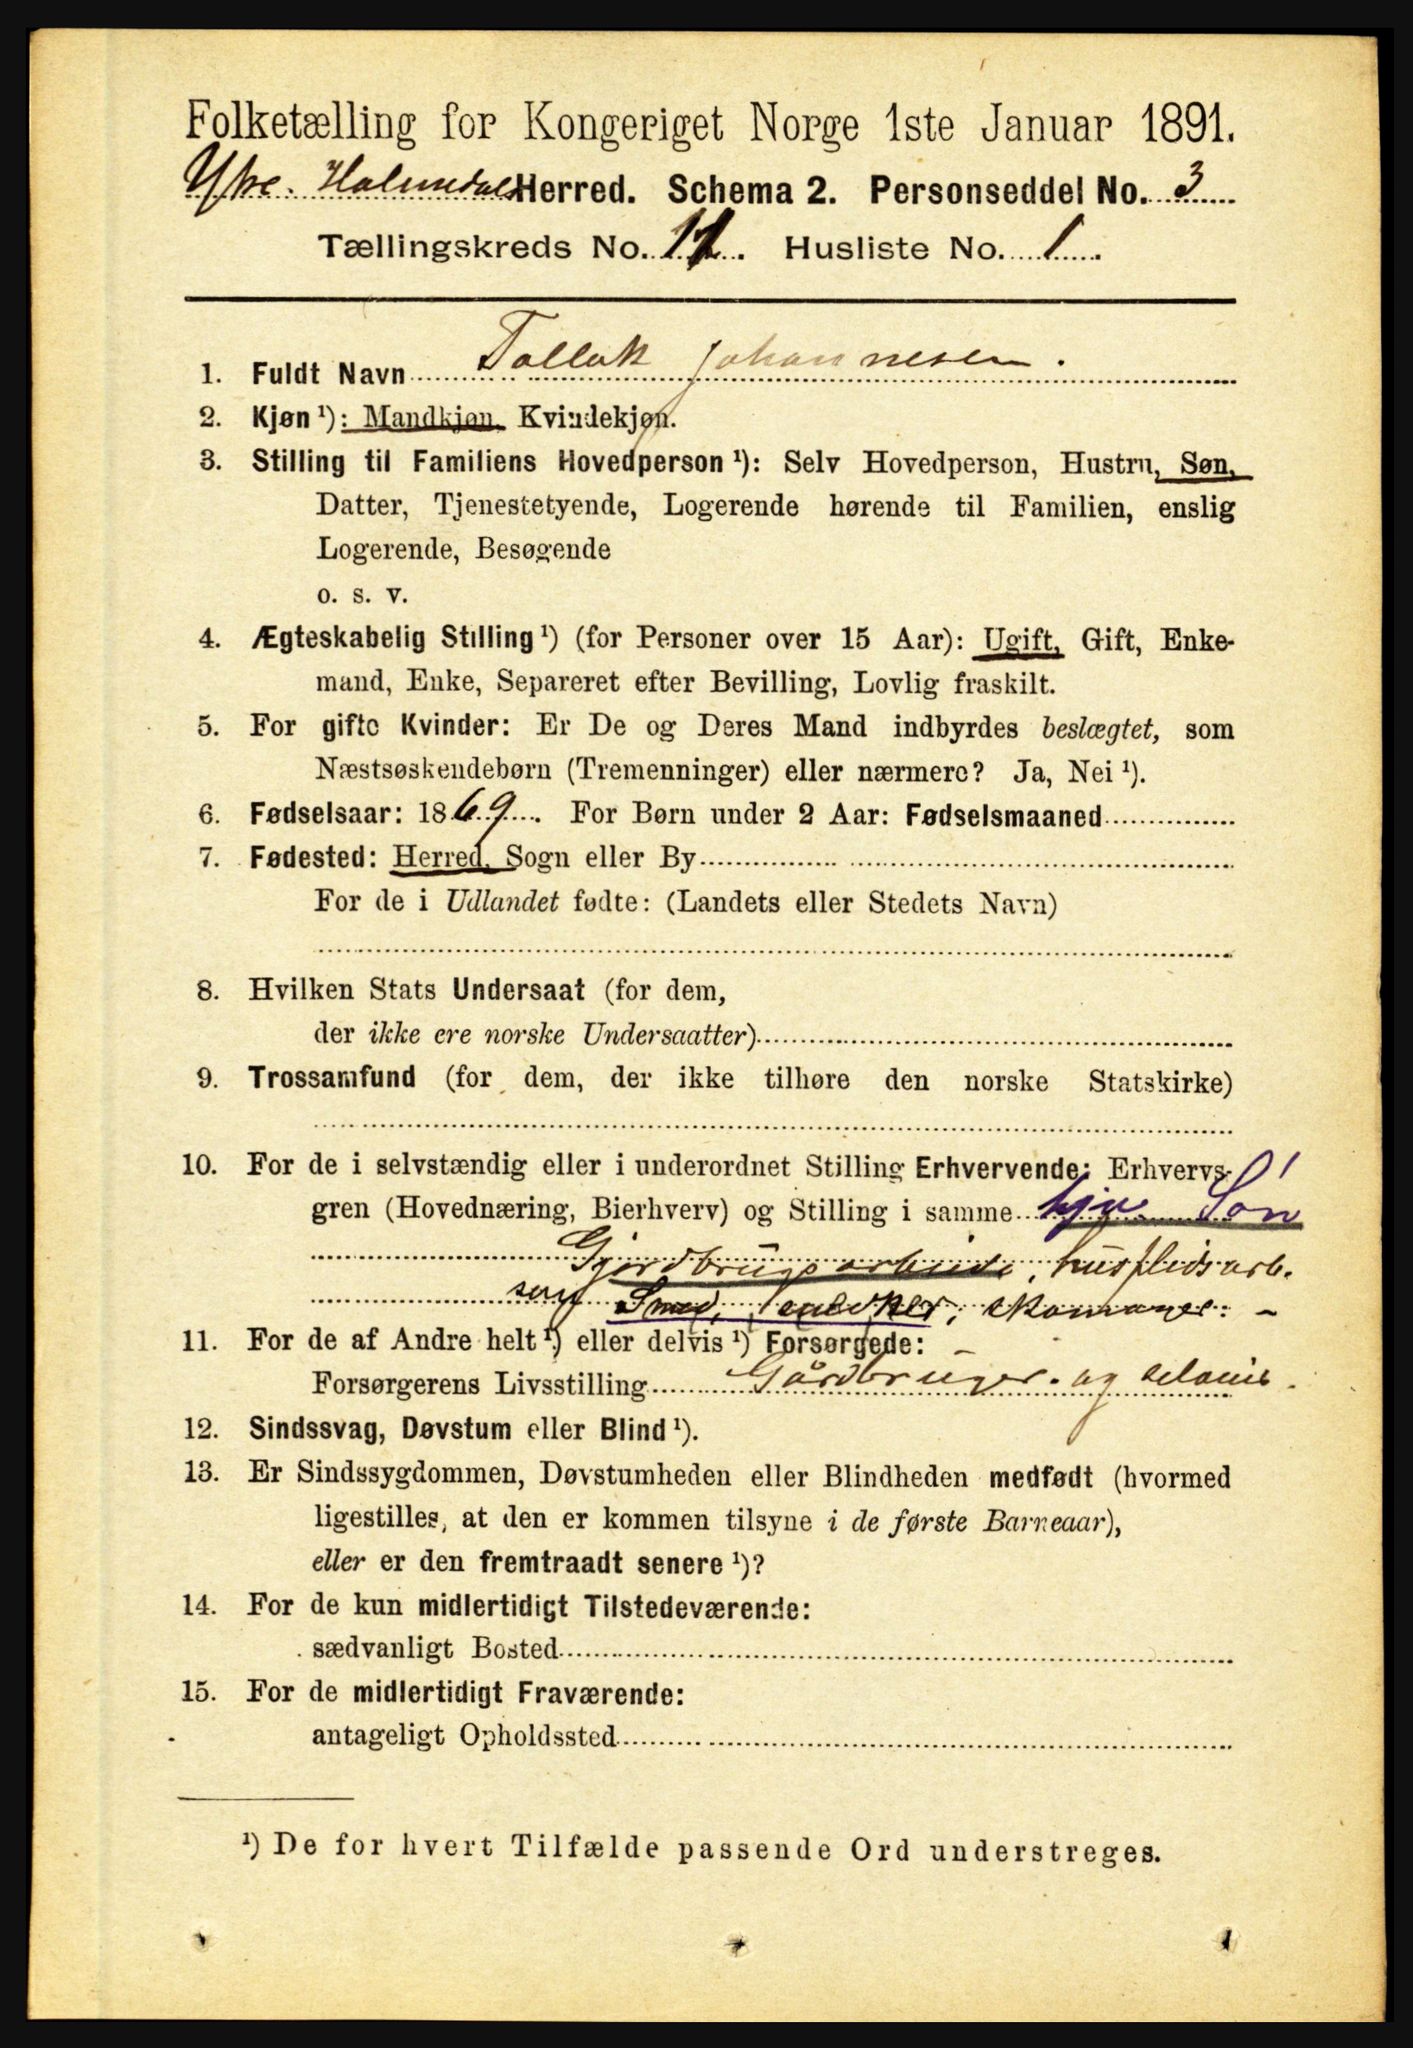 Folketælling for Kongeriget Norge 1ste Januar 1891.
Ytre Holmedals Herred. Schema 2. Personseddel No. 3
Tællingskreds No. 11. Husliste No. 1.
1. Fuldt Navn Tollak Johannesen.
2. Kjøn ¹): Mandkjøn, Kvindekjøn.
3. Stilling til Familiens Hovedperson ¹): Selv Hovedperson, Hustru, Søn,
Datter, Tjenestetyende, Logerende hørende til Familien, enslig
Logerende, Besøgende
o. s. v.
4. Ægteskabelig Stilling ¹) (for Personer over 15 Aar): Ugift, Gift, Enke-
mand, Enke, Separeret efter Bevilling, Lovlig fraskilt.
5. For gifte Kvinder: Er De og Deres Mand indbyrdes beslægtet, som
Næstsøskendebørn (Tremenninger) eller nærmere? Ja, Nei ¹).
6. Fødselsaar: 1869. For Børn under 2 Aar: Fødselsmaaned
7. Fødested: Herred, Sogn eller By
For de i Udlandet fødte: (Landets eller Stedets Navn)
8. Hvilken Stats Undersaat (for dem,
der ikke ere norske Undersaatter)
9. Trossamfund (for dem, der ikke tilhøre den norske Statskirke)
10. For de i selvstændig eller i underordnet Stilling Erhvervende: Erhvervs-
gren (Hovednæring, Bierhverv) og Stilling i samme hjv. Søn
Gjordbrugsarbeide, husflidsarb.
som Smed, Snedker, skomager. -
11. For de af Andre helt ¹) eller delvis ¹) Forsørgede:
Forsørgerens Livsstilling Gårdbruger. og
12. Sindssvag, Døvstum eller Blind ¹).
13. Er Sindssygdommen, Døvstumheden eller Blindheden medfødt (hvormed
ligestilles, at den er kommen tilsyne i de første Barneaar),
eller er den fremtraadt senere ¹)?
14. For de kun midlertidigt Tilstedeværende:
sædvanligt Bosted
15. For de midlertidigt Fraværende:
antageligt Opholdssted
¹) De for hvert Tilfælde passende Ord understreges.